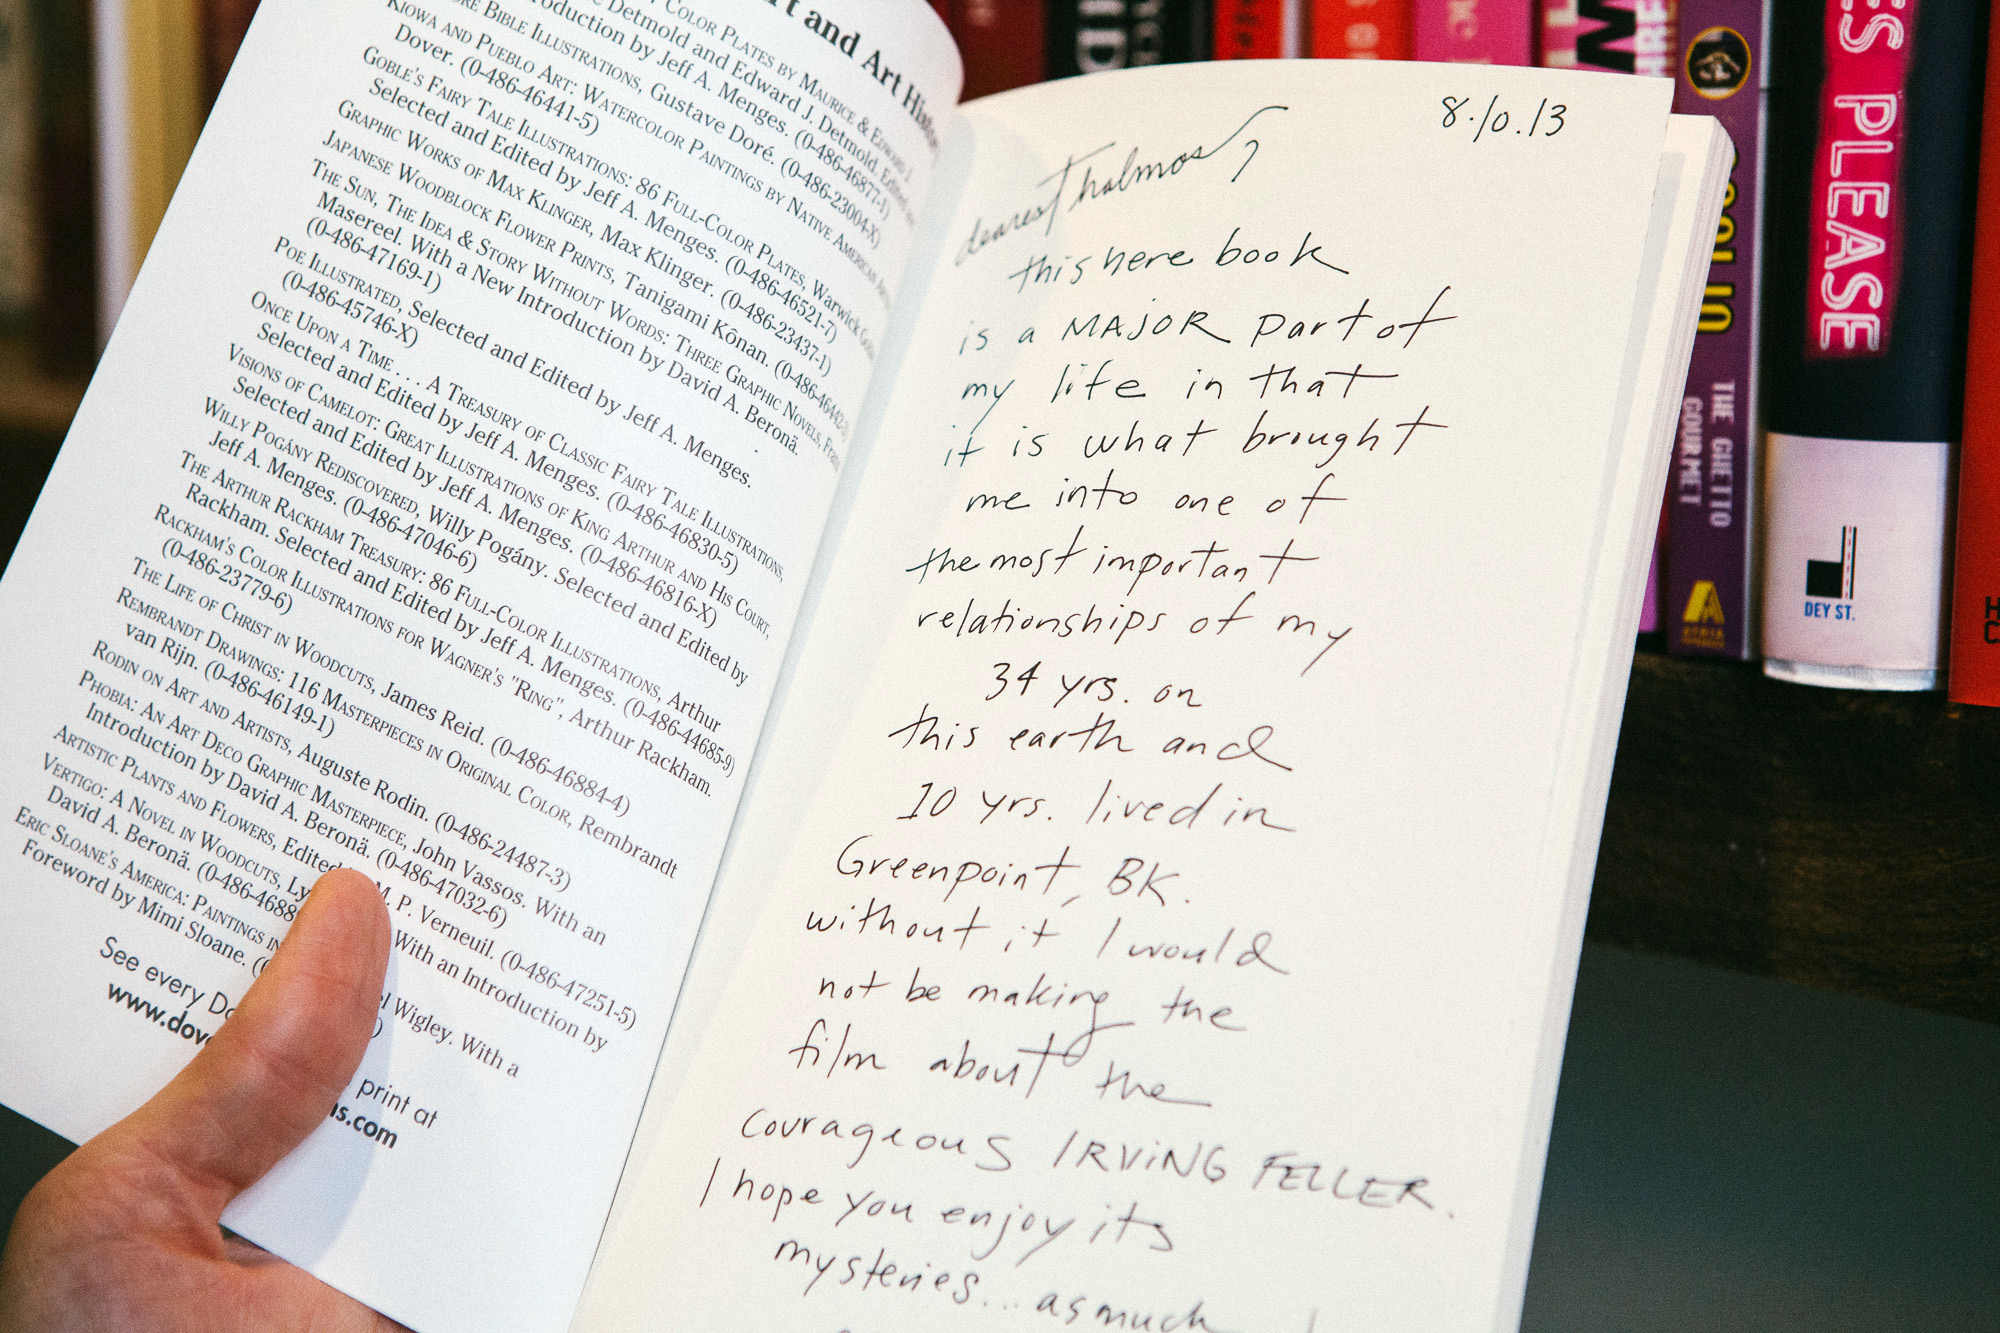 rt and Art History
Color Plates by Maurice & Edward J.
Detmold and Edward J. Detmold. Edited
troduction by Jeff A. Menges. (0-486-46877-1)
ore Bible Illustrations, Gustave Doré. (0-486-23004-X)
Kiowa and Pueblo Art: Watercolor Paintings by Native American
Dover. (0-486-46441-5)
Goble's Fairy Tale Illustrations: 86 Full-Color Plates, Warwick Goble
Selected and Edited by Jeff A. Menges. (0-486-46521-7)
Graphic Works of Max Klinger, Max Klinger. (0-486-23437-1)
Japanese Woodblock Flower Prints, Tanigami Kônan. (0-486-46442-3)
The Sun, The Idea & Story Without Words: Three Graphic Novels, Fran
Masereel. With a New Introduction by David A. Beronä.
(0-486-47169-1)
Poe Illustrated, Selected and Edited by Jeff A. Menges.
(0-486-45746-X)
Once Upon a Time . . . A Treasury of Classic Fairy Tale Illustrations,
Selected and Edited by Jeff A. Menges. (0-486-46830-5)
Visions of Camelot: Great Illustrations of King Arthur and His Court,
Selected and Edited by Jeff A. Menges. (0-486-46816-X)
Willy Pogány Rediscovered, Willy Pogány. Selected and Edited by
Jeff A. Menges. (0-486-47046-6)
The Arthur Rackham Treasury: 86 Full-Color Illustrations, Arthur
Rackham. Selected and Edited by Jeff A. Menges. (0-486-44685-9)
Rackham's Color Illustrations for Wagner's "Ring", Arthur Rackham.
(0-486-23779-6)
The Life of Christ in Woodcuts, James Reid. (0-486-46884-4)
Rembrandt Drawings: 116 Masterpieces in Original Color, Rembrandt
van Rijn. (0-486-46149-1)
Rodin on Art and Artists, Auguste Rodin. (0-486-24487-3)
Phobia: An Art Deco Graphic Masterpiece, John Vassos. With an
Introduction by David A. Beronä. (0-486-47032-6)
Artistic Plants and Flowers, Edited M. P. Verneuil. (0-486-47251-5)
Vertigo: A Novel in Woodcuts, Ly With an Introduction by
David A. Beronä. (0-486-4688
Eric Sloane's America: Paintings in l Wigley. With a
Foreword by Mimi Sloane. (
See every Do print at
www.dov ns.com
8.10.13
dearest Thalmos,
this here book
is a MAJOR part of
my life in that
it is what brought
me into one of
the most important
relationships of my
34 yrs. on
this earth and
10 yrs. lived in
Greenpoint, BK.
without it I would
not be making the
film about the
courageous IRVING FELLER.
I hope you enjoy its
mysteries... as much
ES PLEASE
DEY ST.
COOLIO
THE GHETTO
GOURMET
A